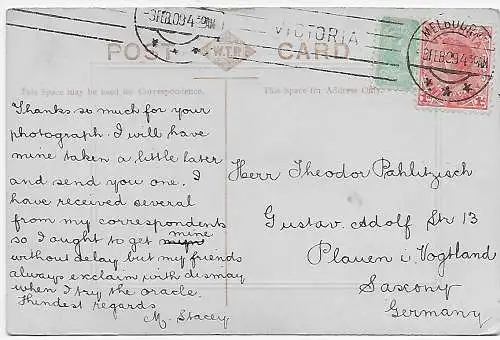 3 FEB 09 4
VICTORIA
MELBOURNE
3 FEB 09 4
POST CARD
W.T.P.
This Space may be used for Correspondence.
This Space for Address Only.
Thanks so much for your
photograph. I will have
mine taken a little later
and send you one. I
have received several
from my correspondents
so I aught to get mine
without delay but my friends
always exclaim with dismay
when I try the oracle.
Kindest regards
M. Stacey
Herr Theodor Pahlitzisch
Gustav. Adolf Str 13
Plauen i. Vogtland
Saxony
Germany